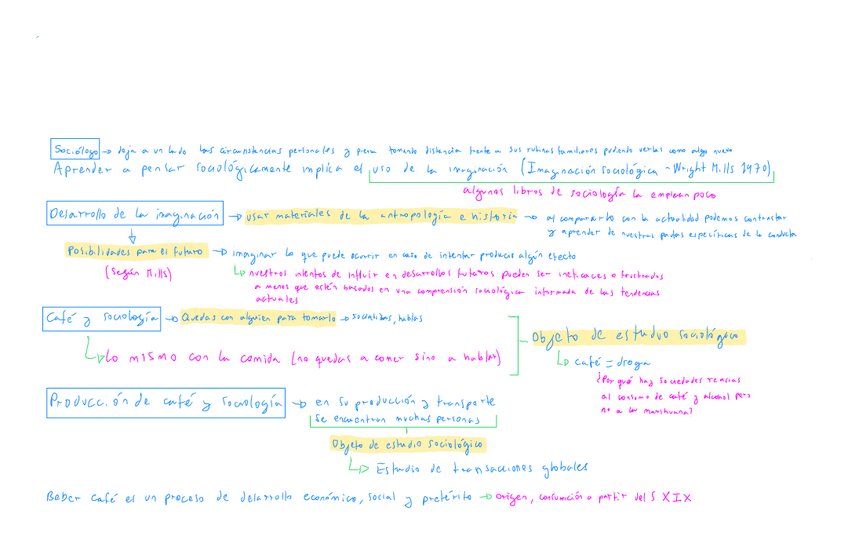 Sociólogo → deja a un lado las circunstancias personales y piensa tomando distancia frente a sus rutinas familiares pudiendo verlas como algo nuevo
Aprender a pensar sociológicamente implica el uso de la imaginación (Imaginación sociológica - Wright Mills 1970)
algunos libros de sociología la emplean poco
Desarrollo de la imaginación → usar materiales de la antropología e historia → al compararlo con la actualidad podemos contrastar
y aprender de nuestras pautas específicas de la conducta
Posibilidades para el futuro → imaginar lo que puede ocurrir en caso de intentar producir algún efecto
(según Mills)
nuestros intentos de influir en desarrollos futuros pueden ser ineficaces o frustrados
a menos que estén basados en una comprensión sociológica informada de las tendencias
actuales
Café y sociología → Quedas con alguien para tomarlo → socializas, hablas
Lo mismo con la comida (no quedas a comer sino a hablar)
Objeto de estudio sociológico
café = droga
¿Por qué hay sociedades reacias
al consumo de café y alcohol pero
no a la marihuana?
Producción de café y sociología → en su producción y transporte
se encuentran muchas personas
Objeto de estudio sociológico
Estudio de transacciones globales
Beber café es un proceso de desarrollo económico, social y pretérito → origen, consumición a partir del S XIX